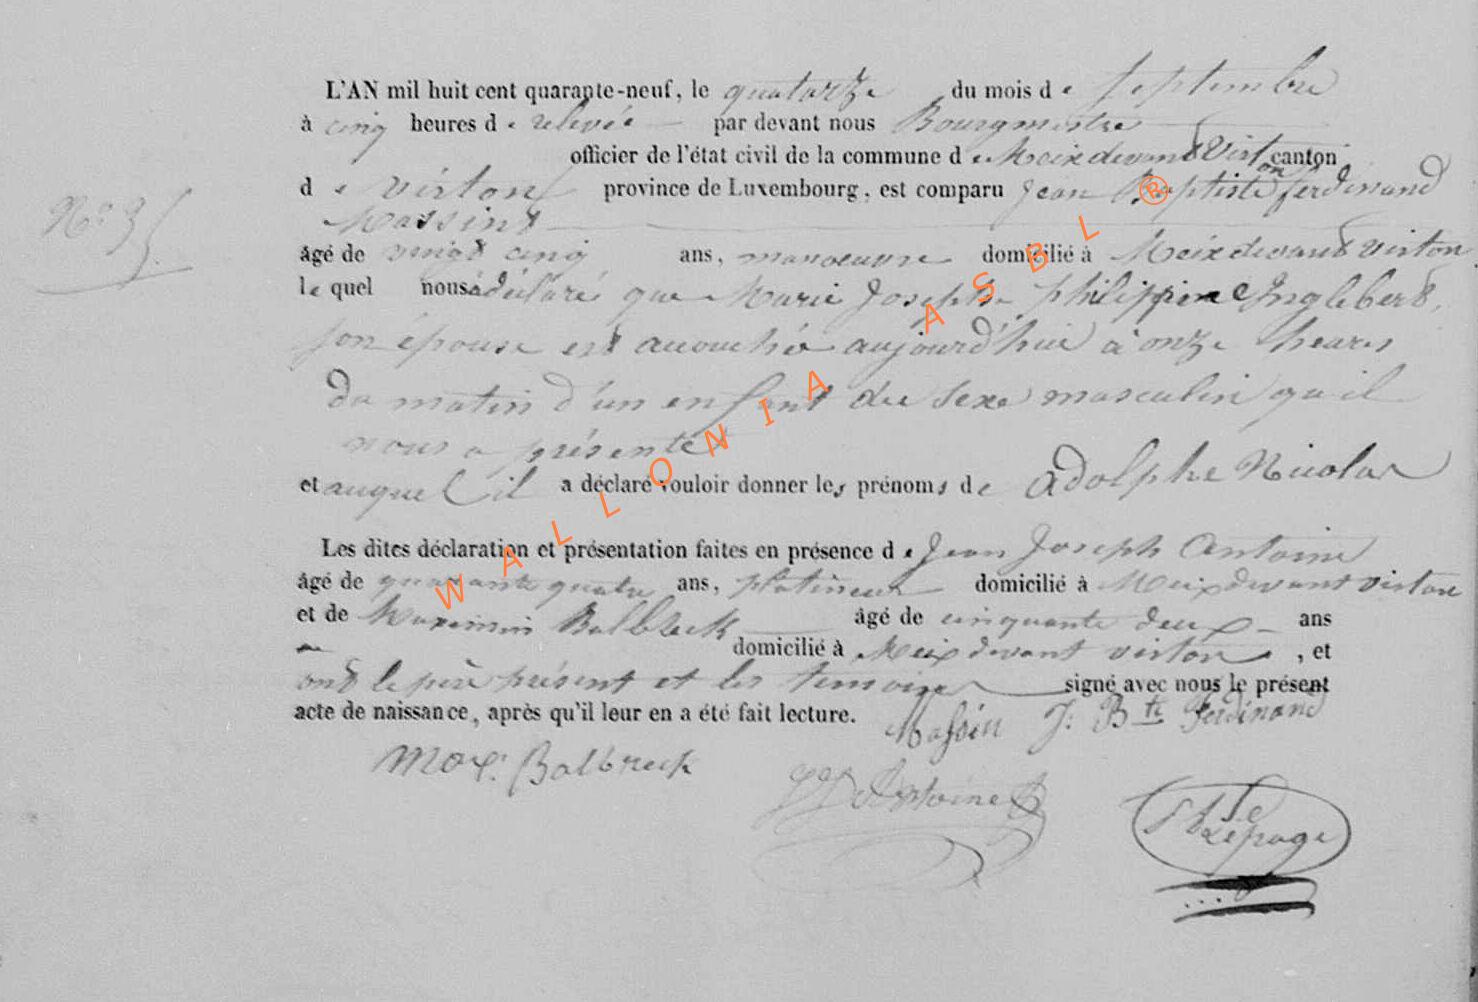 L'AN mil huit cent quarante-neuf, le quatorze du mois de septembre
à cinq heures de relevée par devant nous Bourgmestre
officier de l'état civil de la commune de Meix devant Virton canton
de virton province de Luxembourg, est comparu Jean Baptiste ferdinand
Massint
N° 35
âgé de vingt cinq ans, manoeuvre domicilié à Meix devant virton
le quel nous a déclaré que Marie Josephe philippine Inglebert,
son épouse est accouchée aujourd'hui à onze heures
du matin d'un enfant du sexe masculin qu'il
nous a présenté
et auquel il a déclaré vouloir donner les prénoms de Adolphe Nicolas
Les dites déclaration et présentation faites en présence de Jean Joseph Antoine
âgé de quarante quatre ans, platineur domicilié à Meix devant virton
et de Maximin Balbleck âgé de cinquante deux ans
domicilié à Meix devant virton, et
ont le père présent et les temoins signé avec nous le présent
acte de naissance, après qu'il leur en a été fait lecture.
Massin J: Bte Ferdinand
Max: Balbreck
JJ Antoine
Lepage
WALLONIA ASBL ®